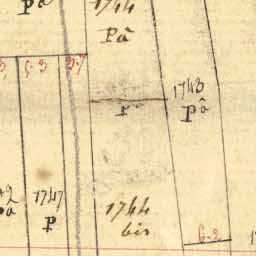 Pâ
1744
Pâ
5.3
3.7
P
1743
Pâ
1747
P
1744
bis
6.2